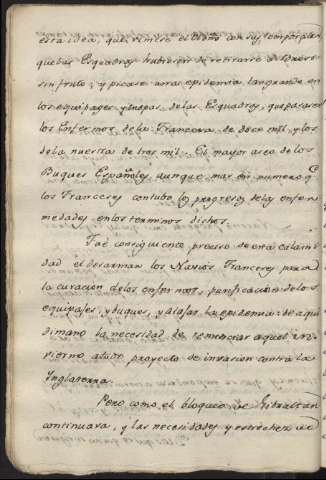 esta idea, que viniese el Otoño con sus temporales
que las Esquadras hubiesen de retirarse de
sin fruto; y picase una epidemia tan grande en
los equipages y tropas de las Esquadras, que pasaron
los Enfermos de la Francesa de doce mil, y los
de la nuestra de tres mil. El mayor aseo de los
Buques Españoles, aunque mas en numero q.e
los Franceses contubo los progresos de las enfer-
medades en los terminos dichos.
Fue consiguiente preciso de esta calami-
dad el desarmar los Navios Franceses para
la curacion de los enfermos, purificacion de los
equipajes, y buques, y atajar la epidemia: de aqui
dimano la necesidad de renunciar aquel in-
vierno a todo proyecto de invasion contra la
Inglaterra.
Pero como el bloqueo de Gibraltar
continuara, y las necesidades y estrechez de